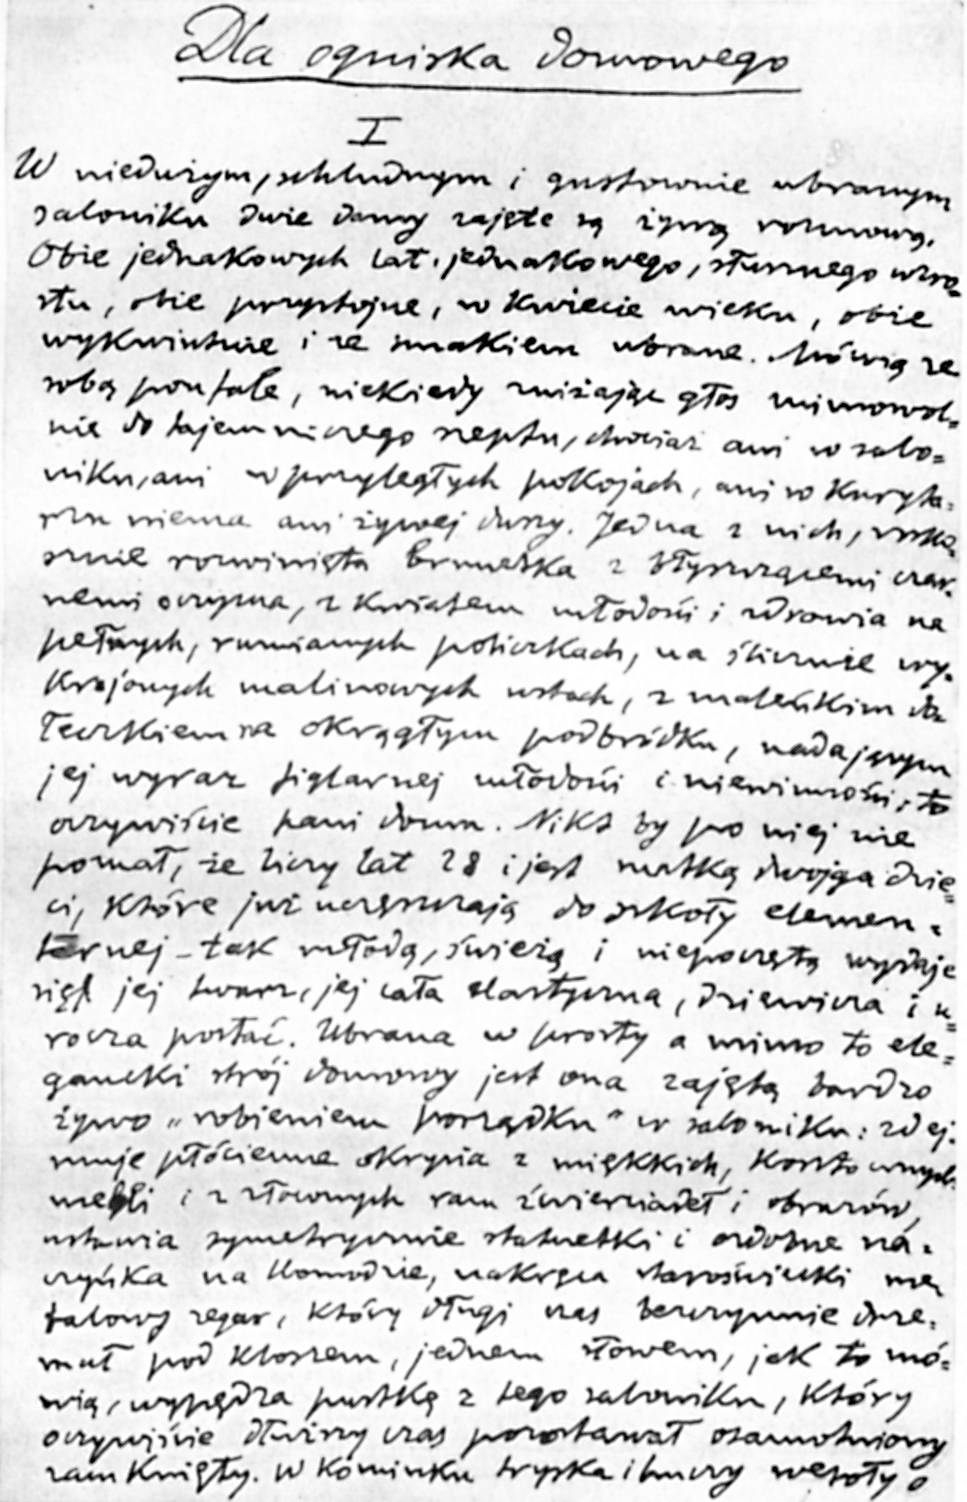 Dla ogniska domowego
I
W niedużym, schludnym i gustownie ubranym
saloniku dwie damy zajęte są żywą rozmową.
Obie jednakowych lat, jednakowego, słusznego wzro-
stu, obie przystojne, w kwiecie wieku, obie
wykwintnie i ze smakiem ubrane. Mówią ze
sobą poufale, niekiedy zniżając głos mimowol-
nie do tajemniczego szeptu, chociaż ani w salo=
niku, ani w przyległych pokojach, ani w kuryta=
rzu niema ani żywej duszy. Jedna z nich,
rozwinięta brunetka z błyszczącemi czar-
nemi oczyma, z kwiatem młodości i zdrowia na
pełnych, rumianych policzkach, na ślicznie wy-
krojonych malinowych ustach, z maleńkim do
łeczkiem na okrągłym podbródku, nadającym
jej wyraz figlarnej młodości i niewinności, to
oczywiście pani domu. Nikt by po niej nie
poznał, że liczy lat 28 i jest matką dwojga dzie=
ci, które już uczęszczają do szkoły elemen=
tarnej – tak młodą, świeżą i niepoczętą wydaje
się jej twarz, jej cała elastyczna, dziewicza i u=
rocza postać. Ubrana w prosty a mimo to ele=
gancki strój domowy jest ona zajętą bardzo
żywo „robieniem porządku" w saloniku: zdej-
muje płócienne okrycia z miękkich, kosztownych
mebli i z złoconych ram źwierciadeł i obrazów,
ustawia symetrycznie statuetki i ozdobne na=
czyńka na komodzie, nakręca staroświecki me
talowy zegar, który długi czas bezczynnie drze-
mał pod kloszem, jednem słowem, jak to mó=
wią, wypędza pustkę z tego saloniku, który
oczywiście dłuższy czas pozostawał osamotniony
zamknięty. W kominku tryska i huczy wesoły o